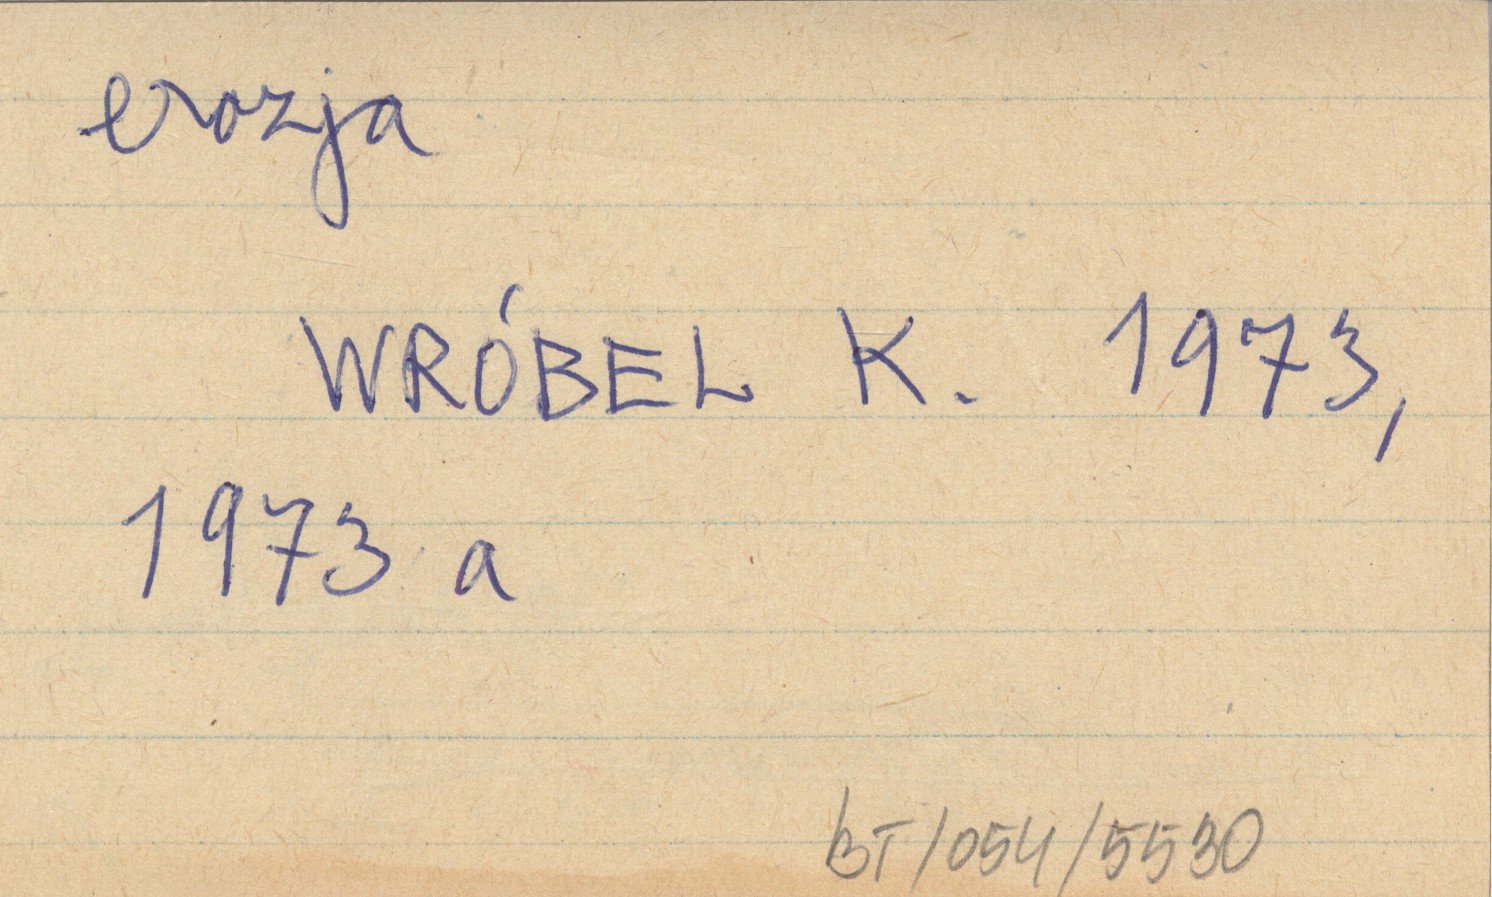 erozja
WRÓBEL K. 1973,
1973 a
BT/054/5530